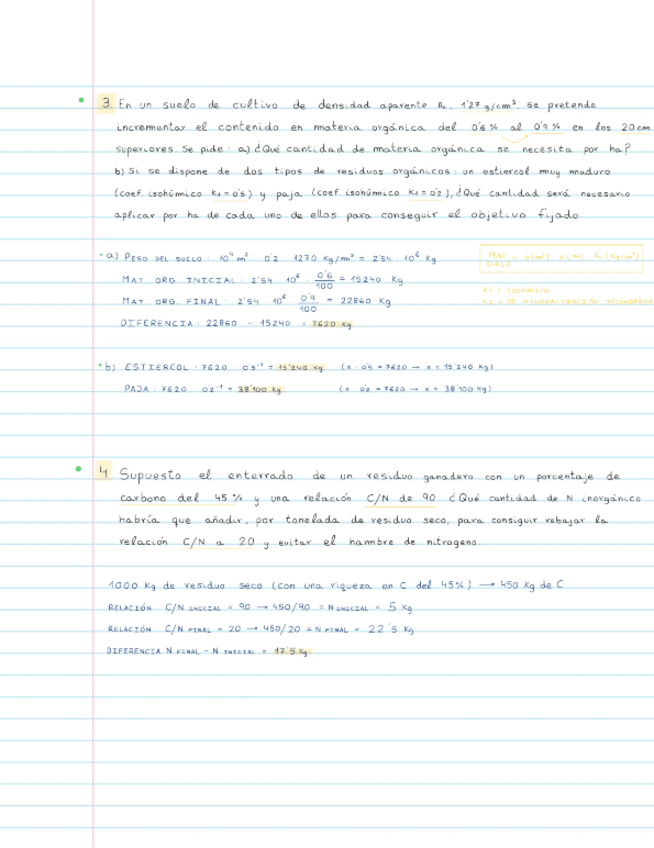 3. En un suelo de cultivo de densidad aparente Da, 1'27 g/cm³, se pretende
incrementar el contenido en materia orgánica del 0'6 % al 0'9 % en los 20 cm
superiores. Se pide: a) ¿Qué cantidad de materia orgánica se necesita por ha?
b) Si se dispone de dos tipos de residuos orgánicos: un estiercol muy maduro
(coef. isohúmico K1 = 0'5) y paja (coef. isohúmico K1 = 0'2), ¿Qué cantidad será necesario
aplicar por ha de cada uno de ellos para conseguir el objetivo fijado
a) PESO DEL SUELO: 10⁴ m² · 0'2 · 1270 Kg/m³ = 2'54 · 10⁶ Kg
PESO SUELO = S (m²) · P (m) · Da (Kg/m³)
MAT ORG INICIAL: 2'54 · 10⁶ · 0'6/100 = 15240 Kg
K1 = ISOHÚMICO
K2 = DE MINERALIZACIÓN SECUNDARIA
MAT ORG. FINAL: 2'54 · 10⁶ · 0'9/100 = 22860 Kg
DIFERENCIA: 22860 - 15240 = 7620 Kg
b) ESTIERCOL: 7620 · 0'5⁻¹ = 15'240 Kg (x · 0'5 = 7620 → x = 15'240 Kg)
PAJA: 7620 · 0'2⁻¹ = 38'100 Kg (x · 0'2 = 7620 → x = 38'100 Kg)
4. Supuesto el enterrado de un residuo ganadero con un porcentaje de
carbono del 45 % y una relación C/N de 90 ¿Qué cantidad de N inorgánico
habría que añadir, por tonelada de residuo seco, para consiguir rebajar la
relación C/N a 20 y evitar el hambre de nitrogeno.
1000 Kg de residuo seco (con una riqueza en C del 45%) → 450 Kg de C
RELACIÓN C/N INICIAL = 90 → 450/90 = N INICIAL = 5 Kg
RELACIÓN C/N FINAL = 20 → 450/20 = N FINAL = 22'5 Kg
DIFERENCIA N FINAL - N INICIAL = 17'5 Kg